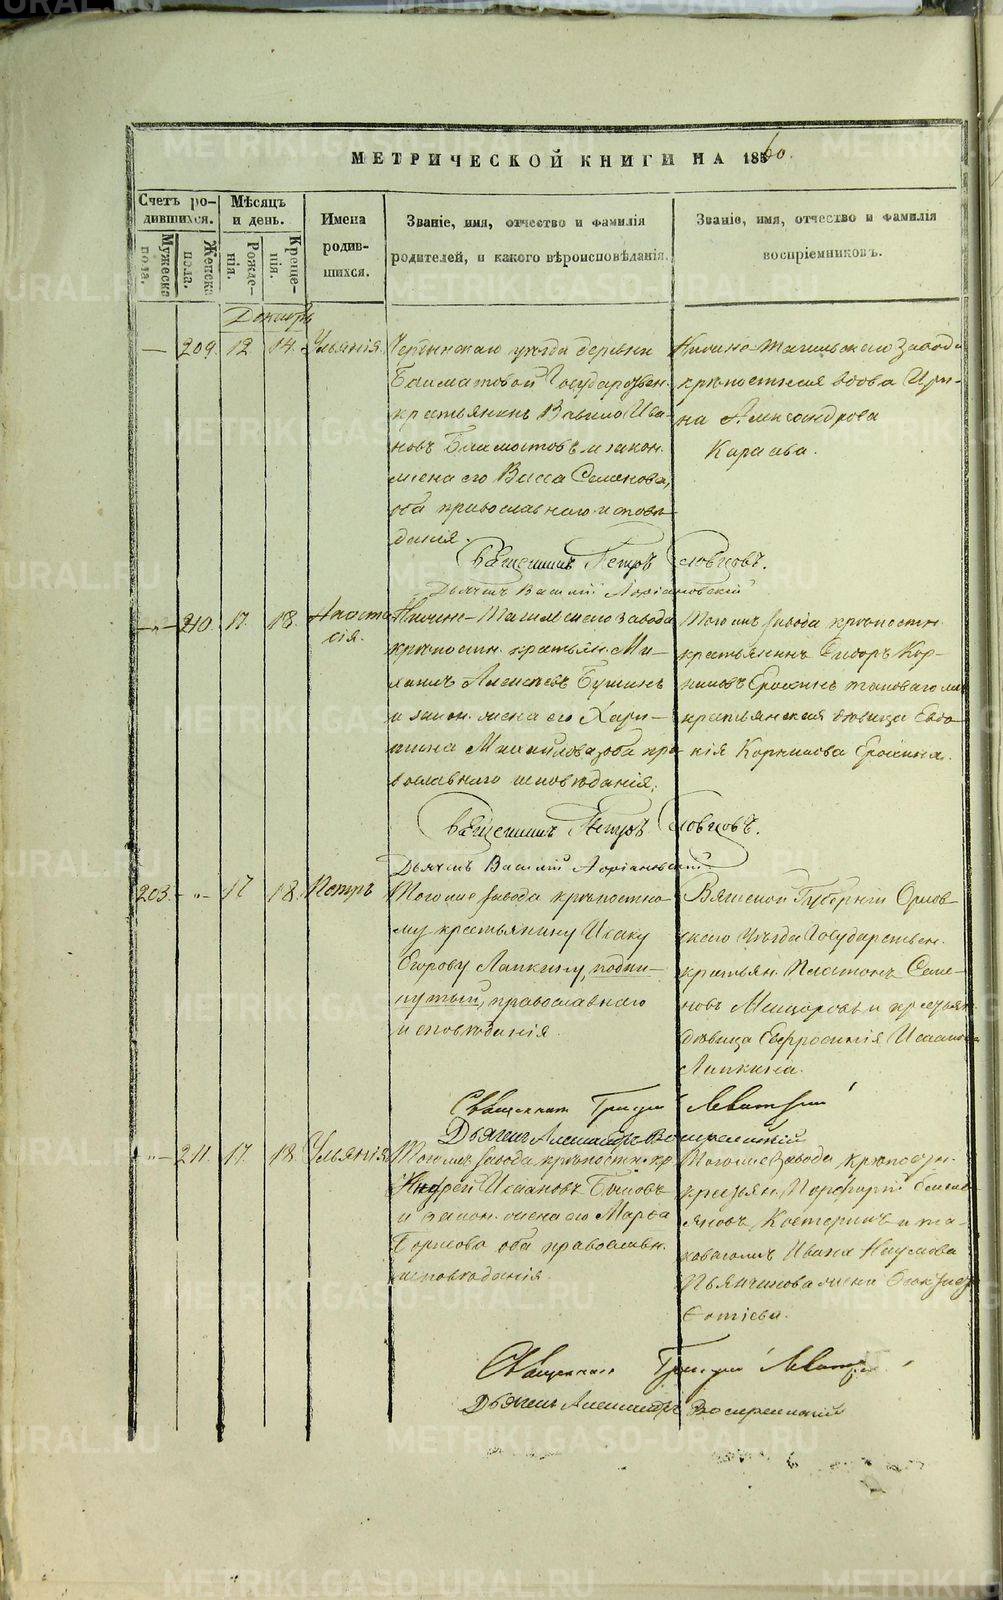 МЕТРИЧЕСКОЙ КНИГИ НА 1860.
Счетъ ро-
дившихся.
Мужеска
пола.
Женска
пола.
Мѣсяцъ
и день.
Рожде-
нія.
Креще-
нія.
Имена
родив-
шихся.
Званіе, имя, отчество и фамилія
родителей, и какого вѣроисповѣданія.
Званіе, имя, отчество и фамилія
воспріемниковъ.
Декабрь
— 209. 12 14. Уліянія.
уѣзда деревни
Государствен.
крестьянинъ Вавило Ива-
новъ и закон.
жена его Васса Семенова,
оба православнаго исповѣ-
данія.
Нижне-Тагильскаго завода
крѣпостная вдова Ири-
на Александрова
Караева.
Священникъ Петръ Словцовъ.
Дьячекъ Василій Адріановскій
— " — 210. 17. 18. Анаста
сія.
Нижне-Тагильскаго завода
крѣпостн. крестьян. Ми-
хаилъ Алексѣевъ Бушинъ
и закон. жена его Хари-
тина Михайлова, оба пра-
вославнаго исповѣданія.
Тогожъ завода крѣпостн.
крестьянинъ Ѳедоръ Кор-
ниловъ Ерохинъ, таковаго же
крестьянская дѣвица Евдо-
кія Корнилова Ерохина.
Священникъ Петръ Словцовъ.
Дьячекъ Василій Адріановскій
203. - " - 17 18. Петръ
Того же завода крѣпостно-
му крестьянину Исаку
Егорову Лапкину, подки-
нутый, православнаго
исповѣданія.
Вятской Губерніи Орлов-
скаго Уѣзда Государствен.
крестьян. Платонъ Семе-
новъ и крестьян.
дѣвица Евфросинія Исакова
Лапкина.
Священникъ Григорій Левитскій
Дьячекъ Александръ Воскресенскій
- " - 211. 17. 18. Уліянія
Тогожъ завода крѣпостн. кр.
Андрей Исааковъ
и закон. жена его Марѳа
Борисова оба православн.
исповѣданія.
Того же завода крѣпостн.
крестьян. Порфирій Емель-
яновъ Костеринъ и та-
коваго же Ивана Наумова
Пьянчикова жена Ѳекла
Ѳотіева.
Священникъ Григорій Левитскій
Дьячекъ Александръ Воскресенскій
METRIKI.GASO-URAL.RU